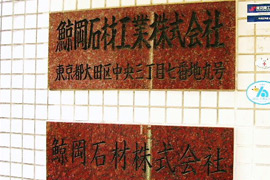 鯨岡石材工業株式会社
東京都大田区中央三丁目七番地九号
鯨岡石材株式会社